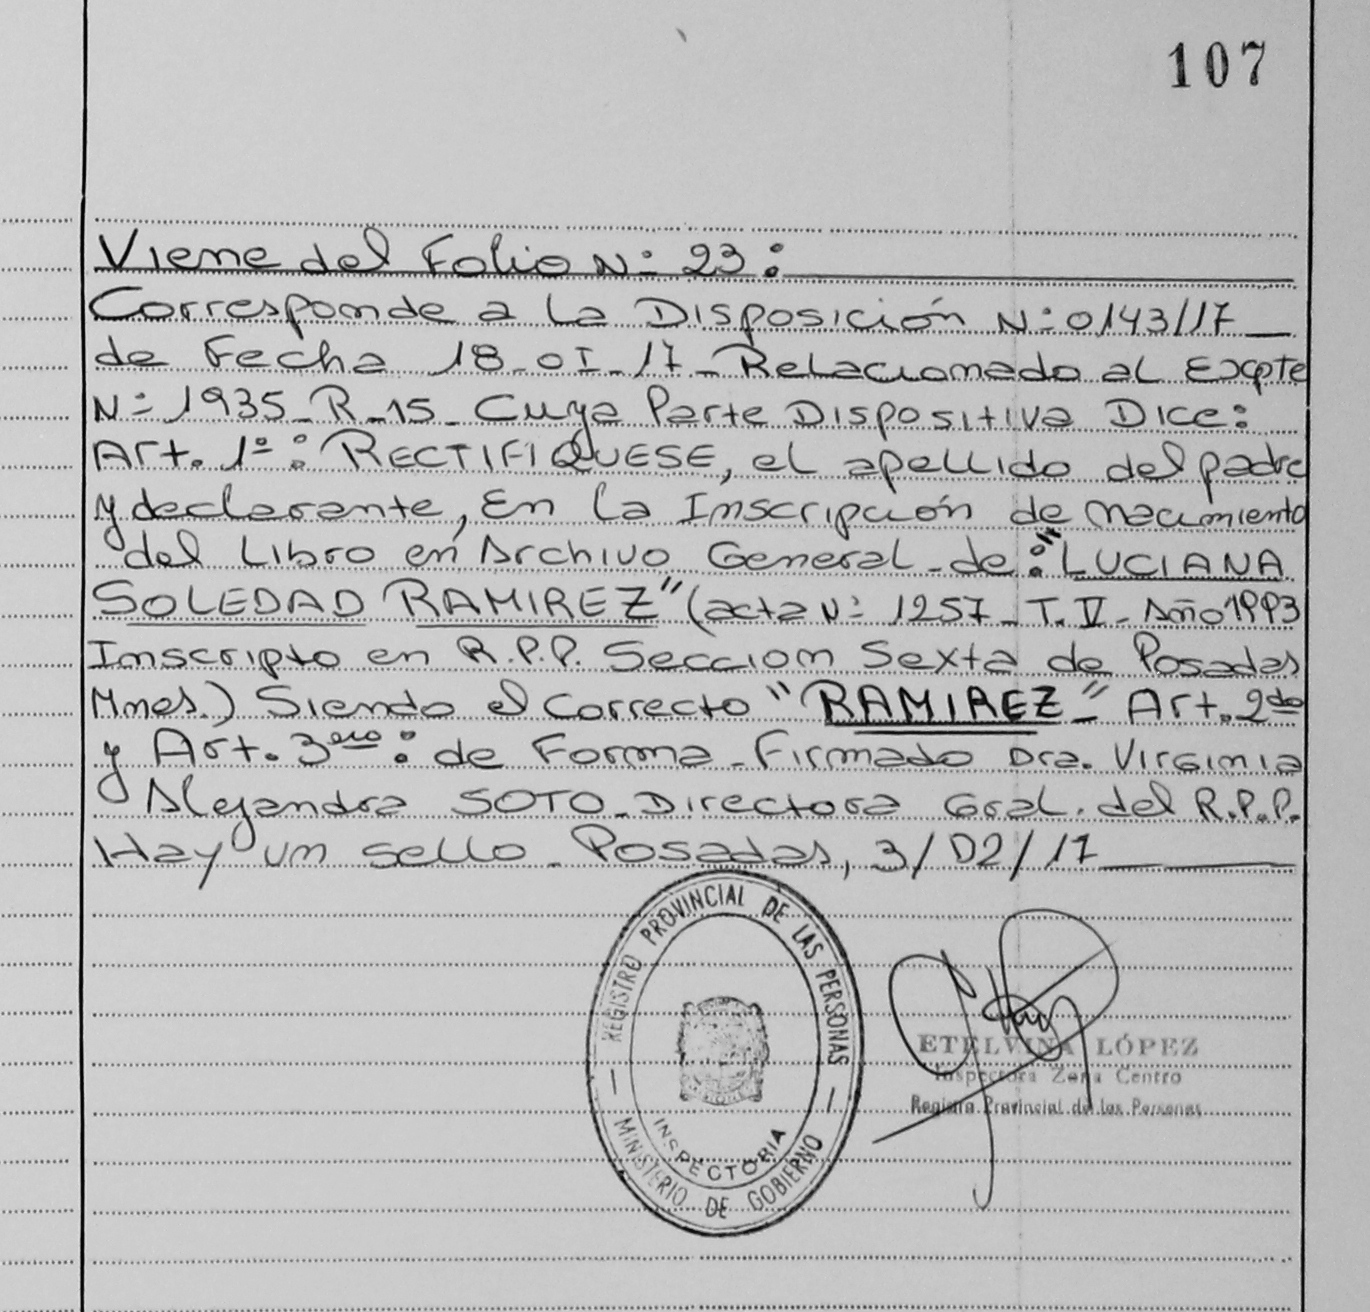 107
Viene del Folio N: 23:
Corresponde a la Disposición N: 0143/17
de Fecha 18-01-17- Relacionado al Expte
N: 1935-R-15- Cuya Parte Dispositiva Dice:
Art. 1º: RECTIFIQUESE, el apellido del padre
y declarante, En la Inscripción de nacimiento
del Libro en Archivo General-de: "LUCIANA
SOLEDAD RAMIREZ" (acta N: 1257- T. V- Año 1993
Inscripto en R.P.P. Seccion Sexta de Posadas
Mnes.) Siendo el Correcto "RAMIREZ" Art. 2do
y Art. 3ero: de Forma-Firmado Dra. Virginia
Alejandra SOTO-Directora Gral. del R.P.P.
Hay un sello-Posadas, 3/02/17
REGISTRO PROVINCIAL DE LAS PERSONAS
INSPECTORIA
MINISTERIO DE GOBIERNO
ETELVINA LÓPEZ
Inspectora Zona Centro
Registro Provincial de las Personas